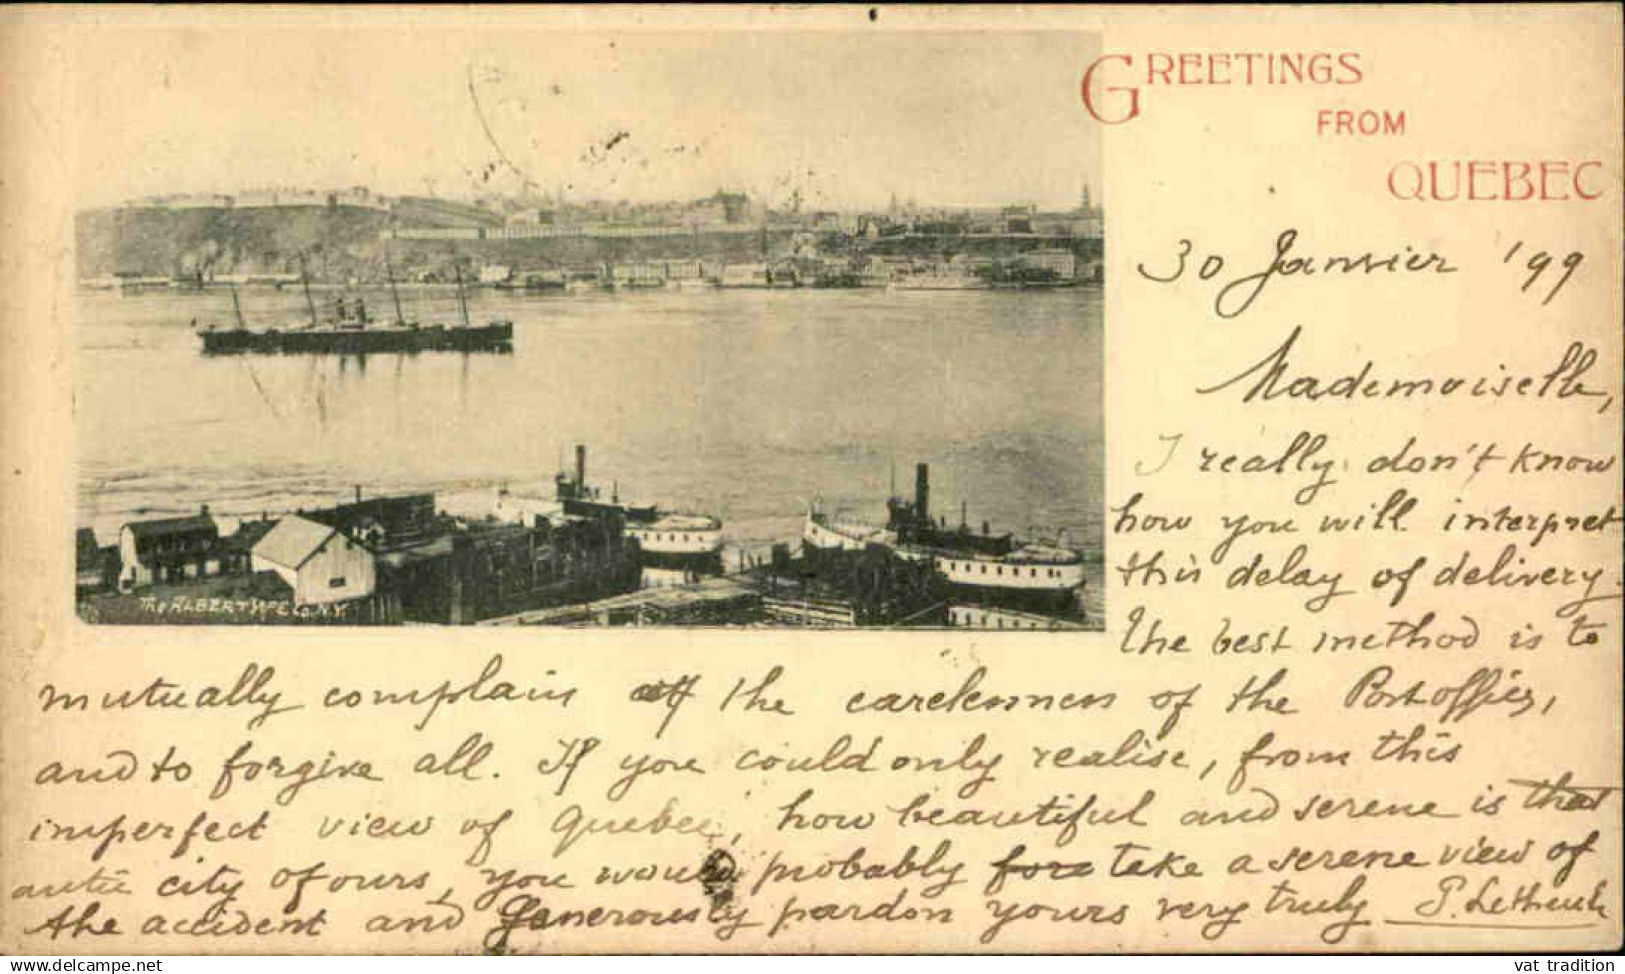 GREETINGS
FROM
QUEBEC
30 Janvier '99
Mademoiselle,
I really don't know
how you will interpret
this delay of delivery.
The best method is to
mutually complain off the carelessness of the Post offices,
and to forgive all. If you could only realise, from this
imperfect view of Quebec, how beautiful and serene is that
city of ours, you would probably fore take a serene view of
the accident and generously pardon yours very truly
The ALBERTYPE Co. N.Y.
vat tradition